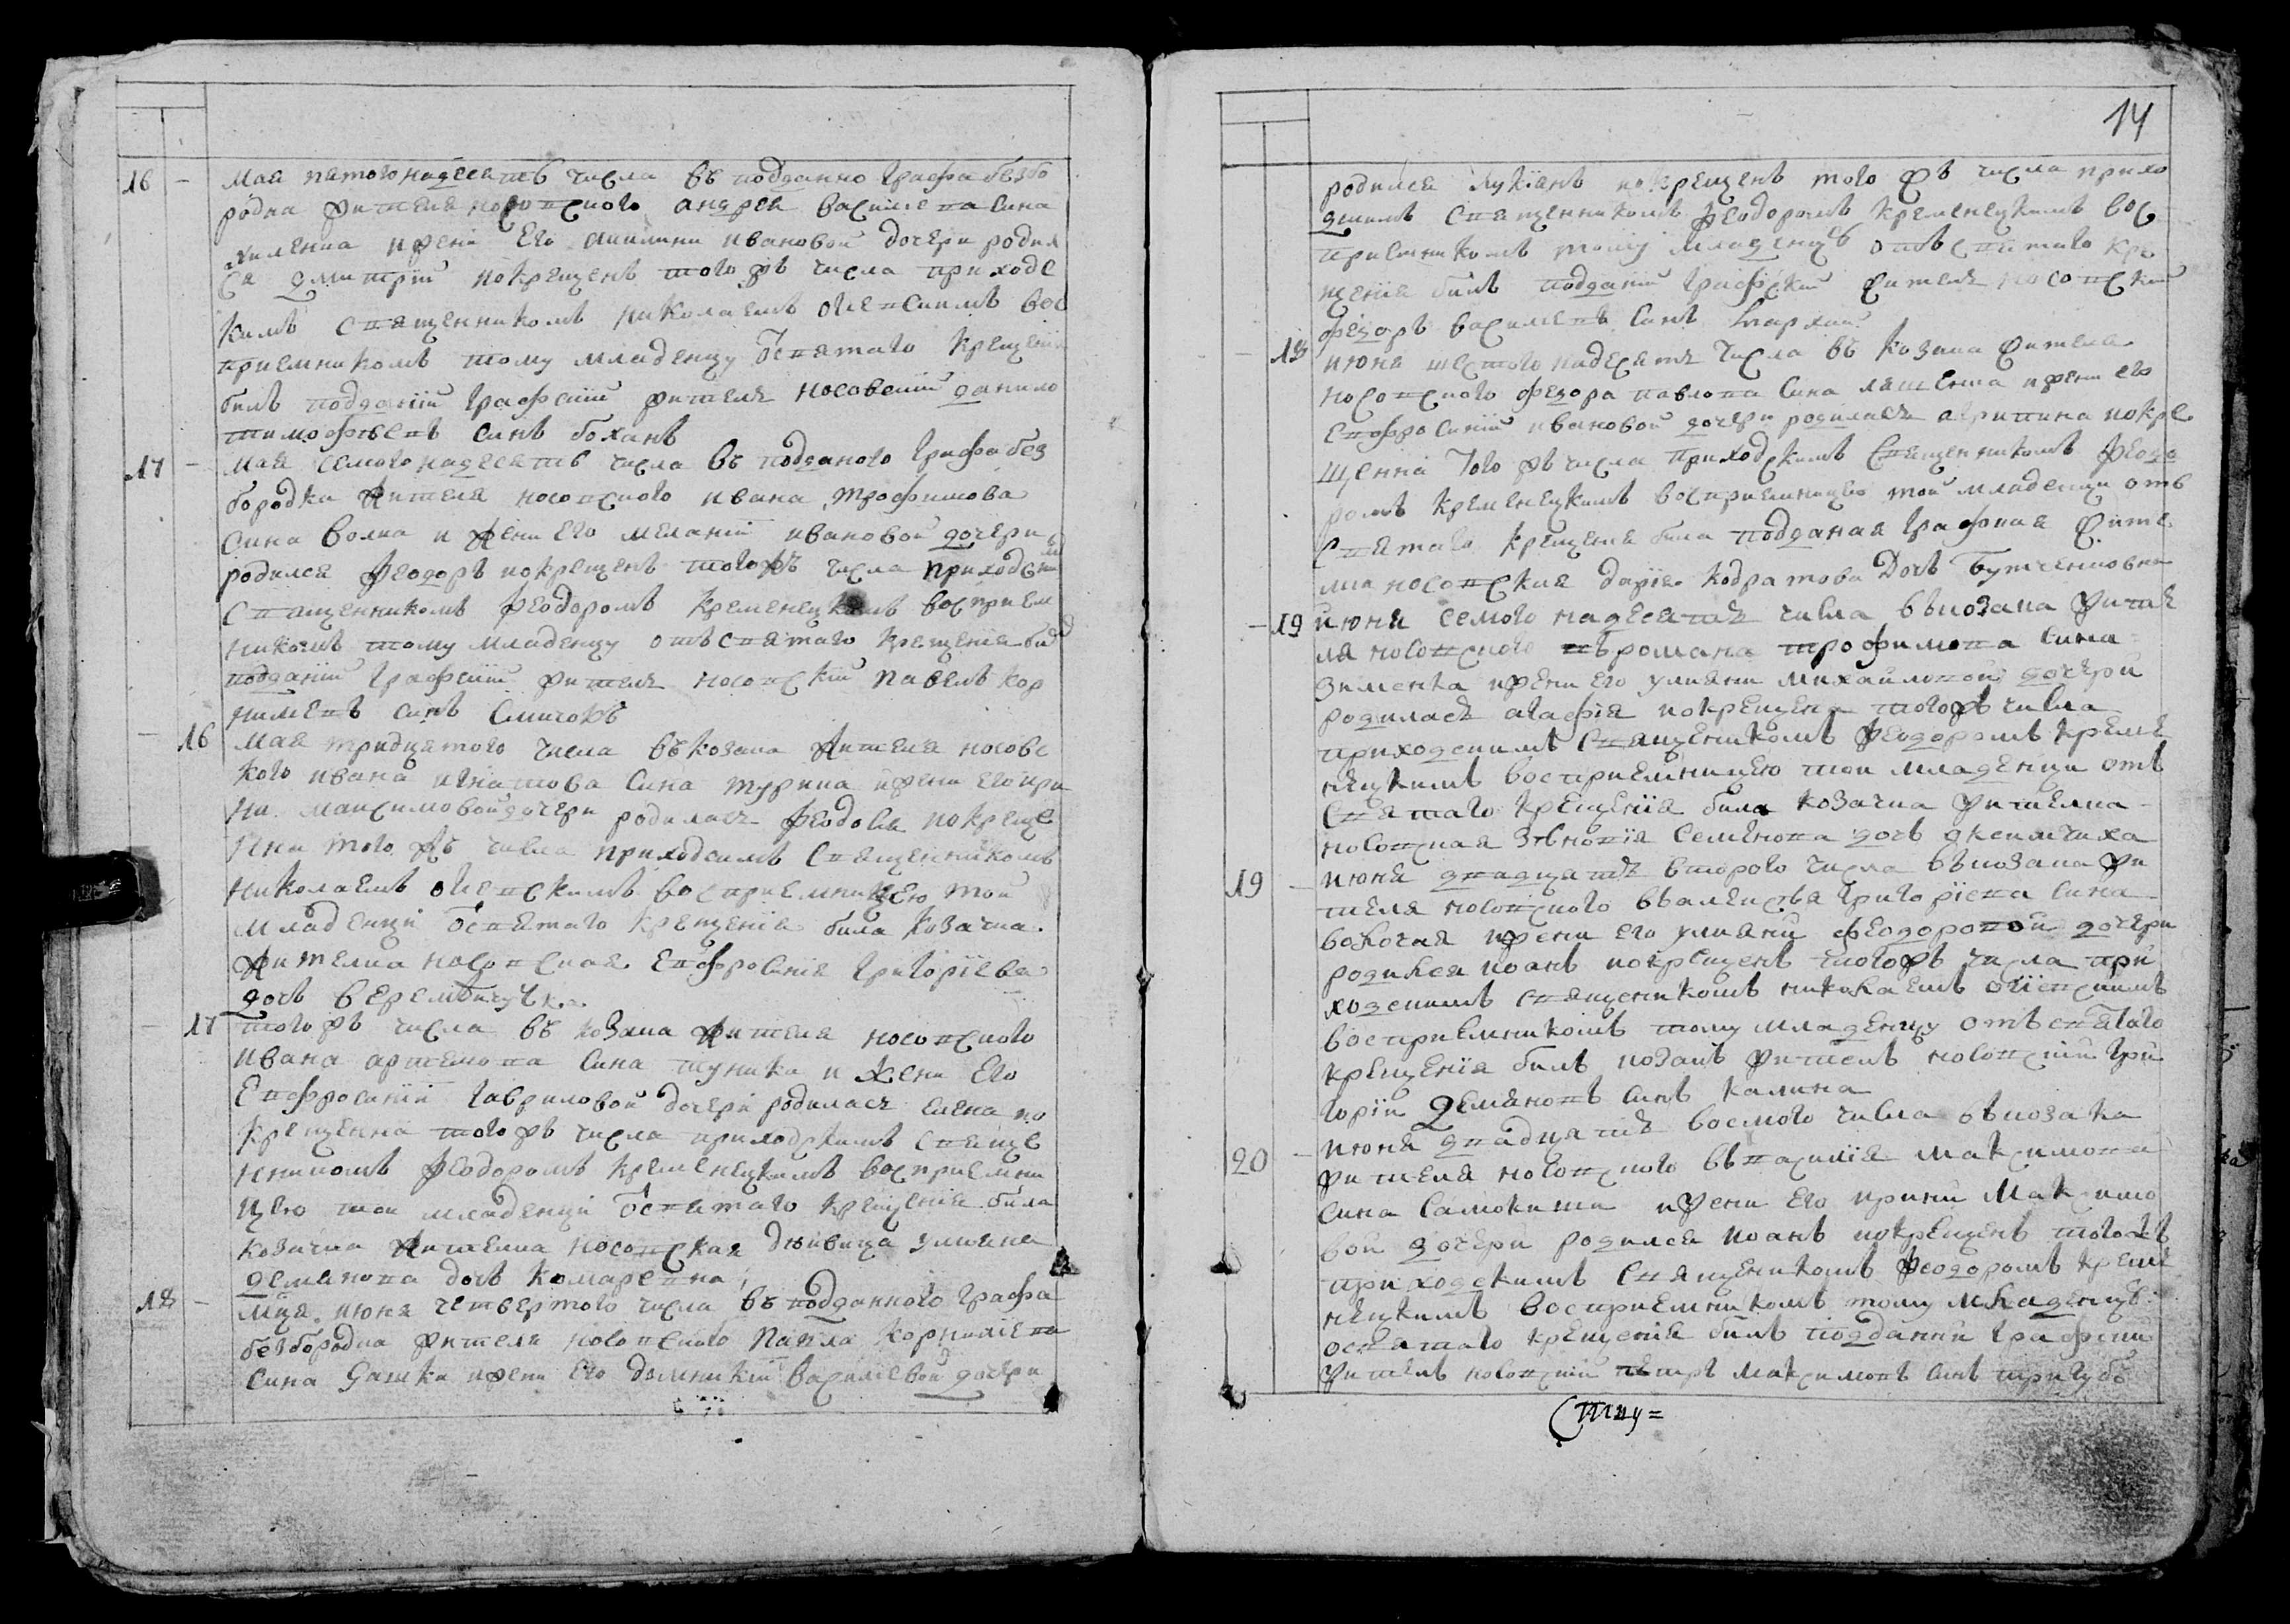 16 - Мая пятогонадесять числа въ подданно Графа безбо
родка жителя носовского андрея василиева сина
хиленка и жени Его ивановой дочери родил
ся дмитрій и окрещенъ того жъ числа приходс
кимъ священникомъ николаемъ вос
приемникомъ тому младенцу от святаго крещенія
билъ подданій Графскій жителъ носовскій данило
тимофѣевъ синъ боханъ
17 - мая семогонадесять числа въ подданого Графа без
бородка жителя носовского ивана трофимова
сина волка и жени Его меланіи ивановой дочери
родился феодоръ и окрещенъ того жъ числа приходским
священникомъ феодоромъ кременецкимъ восприем
никомъ тому младенцу отъ святаго крещенія билъ
подданій Графскій жителъ носовскій павелъ кор
нилиевъ синъ
- 16 мая тридцятого числа въ козака жителя носовс
кого ивана игнатова сина турика и жени Его ири
ни максимовой дочери родилась феодосия и окреще
нна того жъ числа приходскимъ священникомъ
николаемъ восприемницею той
младенци от святаго крещенія била козачка
жителка носовская Евфросинія Григоріева
дочь
- 17 того жъ числа въ козака жителя носовского
ивана артемова сина тупика и жени Его
Евфросиніи Гавриловой дочери родилась Елена и о
крещенна того жъ числа приходскимъ свяще
нникомъ феодоромъ кременецкимъ восприемни
цею той младенци от святаго крещенія била
козачка жителка носовская дѣвица улияна
демянова дочь комаревна
18 - мца июня четвертого числа въ подданного Графа
безбородка жителя носовского Павла корнилиева
сина Гашка и жени Его домникіи василіевой дочери
14
родился лукіянъ и окрещенъ того жъ числа прихо
дскимъ священникомъ феодоромъ кременецкимъ вос
приемникомъ тому младенцу отъ святаго кре
щенія билъ подданій Графскій жителъ носовскій
федоръ василиевъ синъ
- 18 июня шестогонадесять числа въ козака жителя
носовского федора павлова сина ляшенка и жени его
Евфросиніи ивановой дочери родилась агрипина и окре
щенна того жъ числа приходскимъ священникомъ феодо
ромъ кременецкимъ восприемницею той младенци отъ
святаго крещенія била подданая Графская жите
лка носовская дарія кодратова дочь
- 19 июня семогонадесять числа въ козака жите
ля носовского въ романа трофимова сина
зименка и жени его улияни михайловой дочери
родилась агафія и окрещена того жъ числа
приходскимъ священикомъ феодоромъ креме
нецкимъ восприемницею той младенци отъ
святаго крещенія била козачка жителка
носовская зѣновія семенова дочь
19 - июня двадцать второго числа въ козака жи
теля носовского въ алексѣя григоріева сина
вокочая и жени его улияни феодоровой дочери
родился иоанъ и окрещенъ того жъ числа при
ходскимъ священикомъ николаемъ
восприемникомъ тому младенцу отъ святаго
крещенія билъ козакъ жителъ носовскій гри
горій Демяновъ синъ калина
20 - июня двадцать восмого числа въ козака
жителя носовского въ василія максимова
сина самокиши и жени его ирини Максимо
вой дочери родился иоанъ и окрещенъ того жъ
приходскимъ священикомъ феодоромъ креме
нецкимъ восприемникомъ тому младенцу
от святаго крещенія билъ подданій графскій
жителъ носовскій петръ максимовъ синъ тригубъ